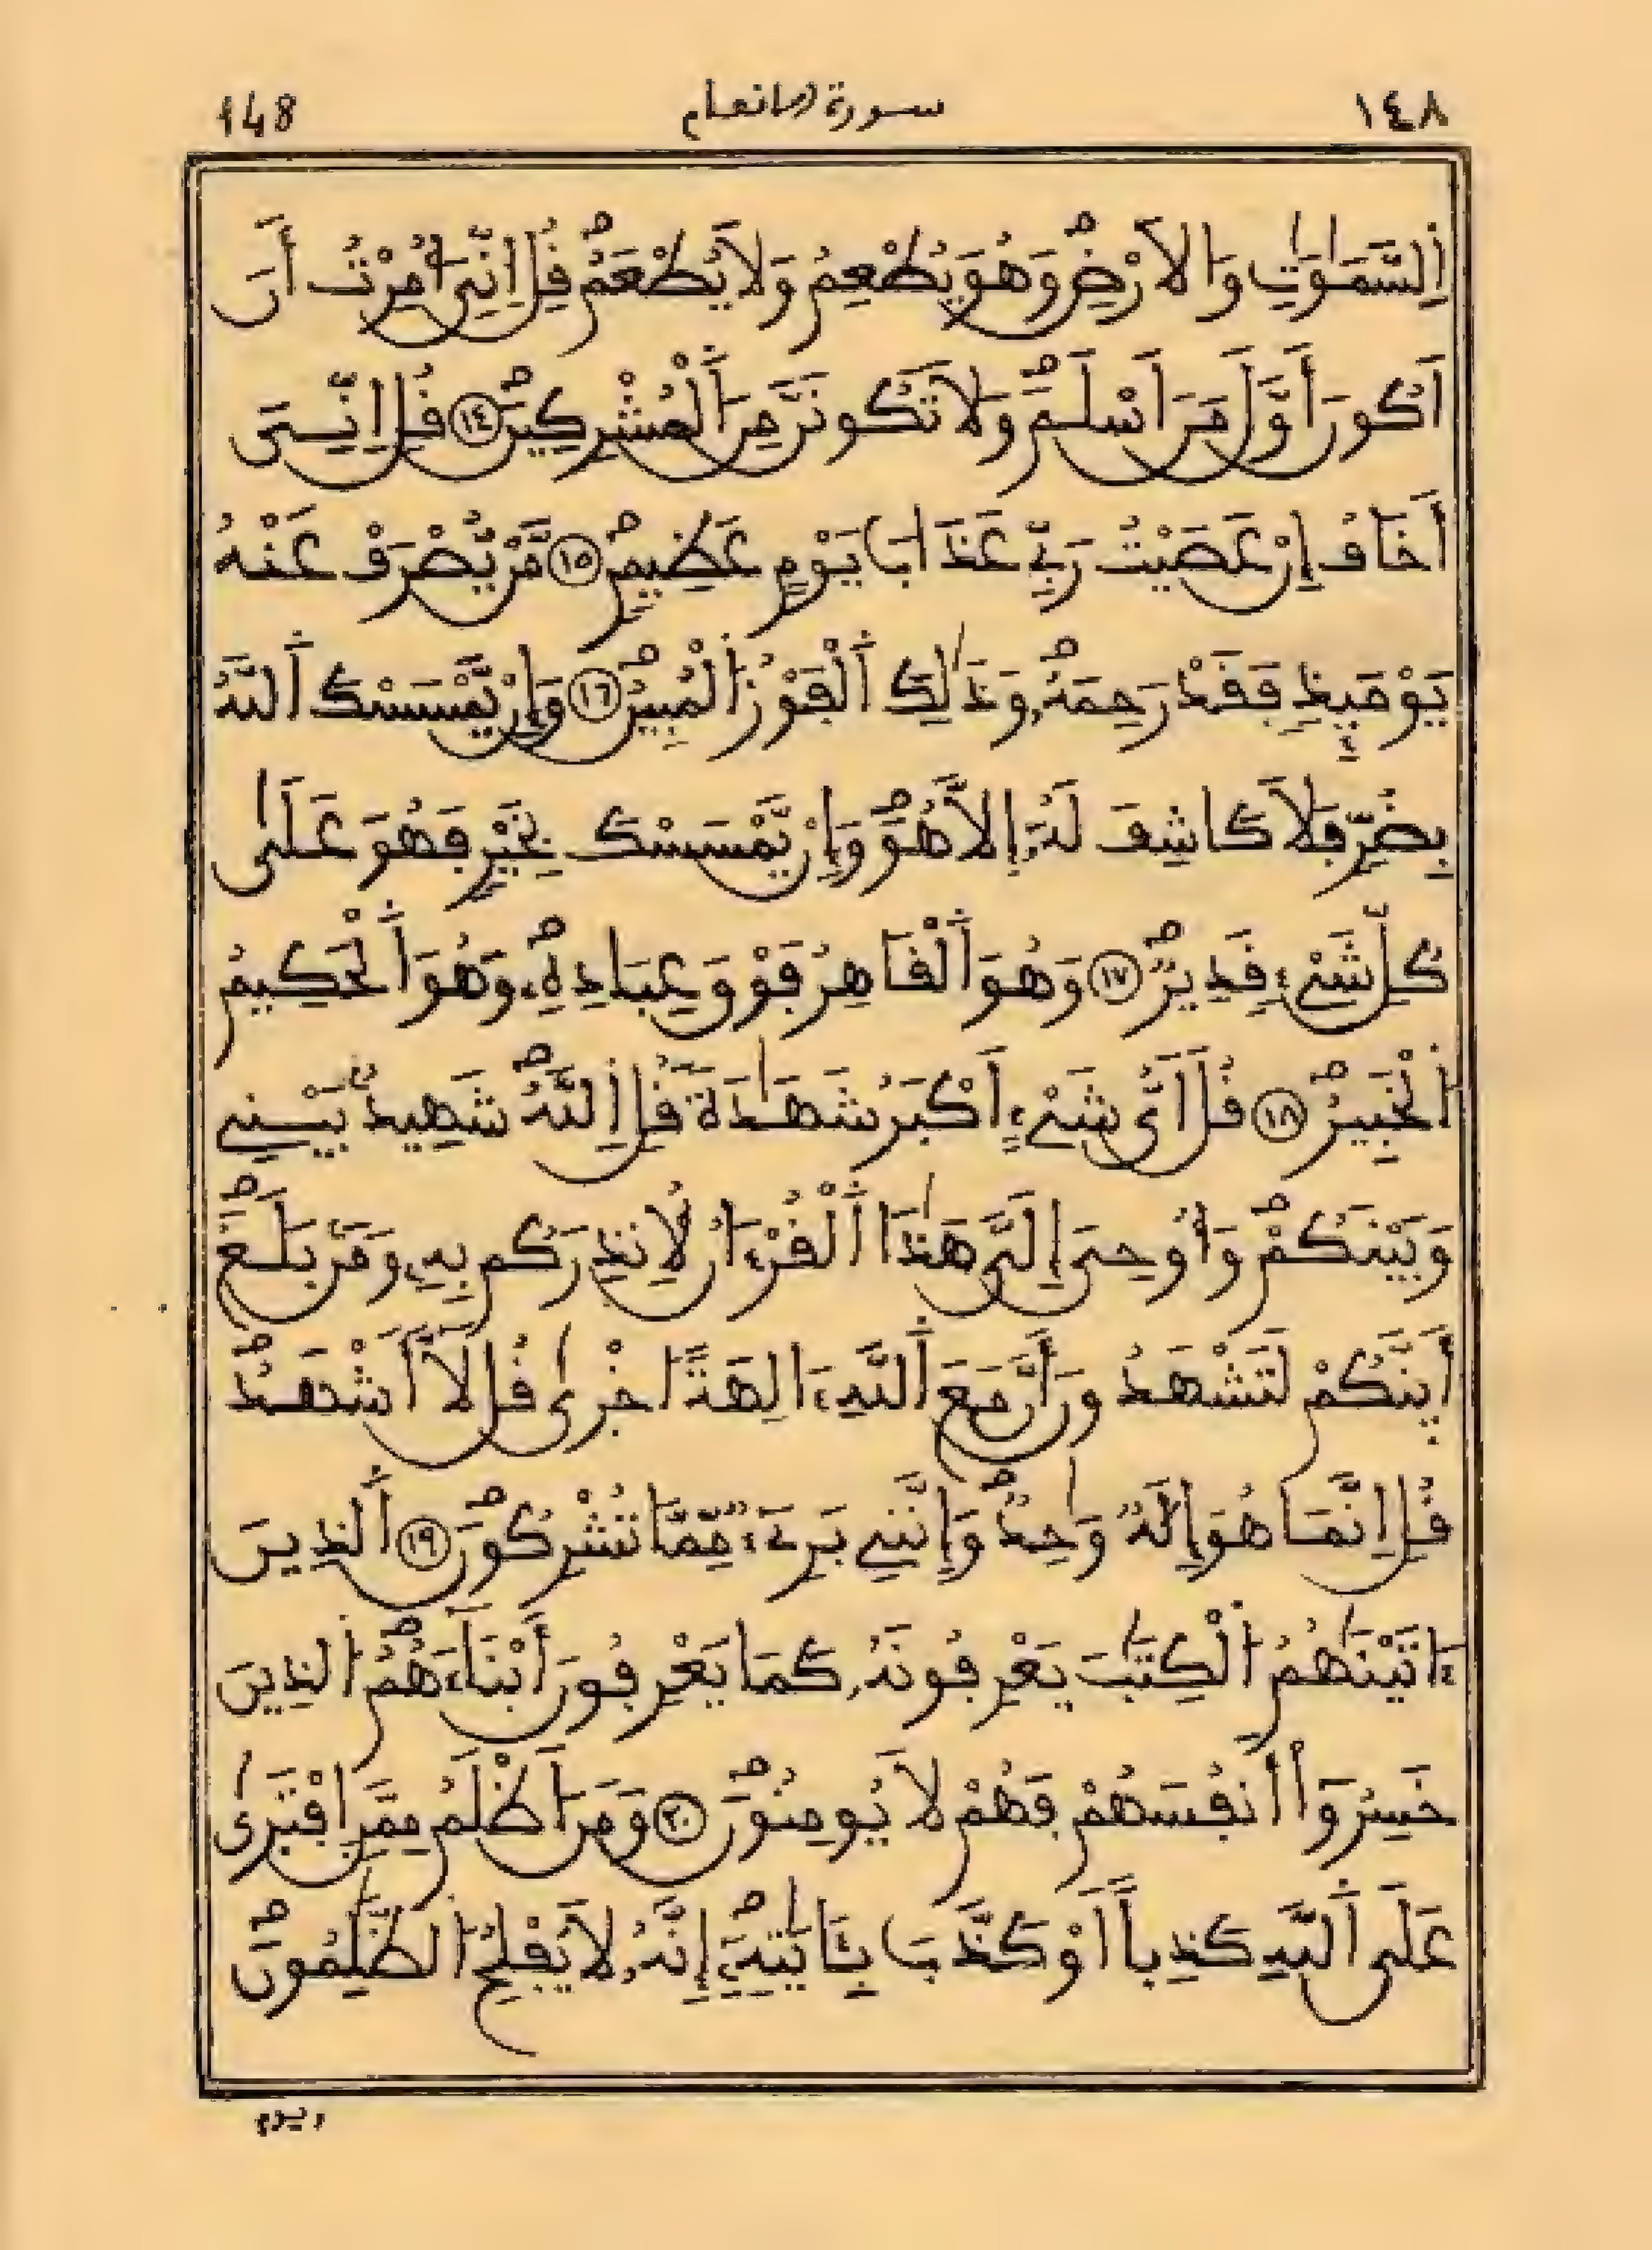 148 سورة الانعام ١٤٨
اَ۬لسَّمَٰوَٰتِ وَالَارْضِۖ وَهُوَ يُطْعِمُ وَلَا يُطْعَمُۖ قُلِ اِنِّيَ أُمِرْتُ أَنَ
اَكُونَ أَوَّلَ مَنَ اَسْلَمَۖ وَلَا تَكُونَنَّ مِنَ اَ۬لْمُشْرِكِينَۖ ١٤ قُلِ اِنِّيَ
أَخَافُ إِنْ عَصَيْتُ رَبِّے عَذَابَ يَوْمٍ عَظِيمٖۖ ١٥ مَّنْ يُّصْرَفْ عَنْهُ
يَوْمَئِذٖ فَقَدْ رَحِمَهُۥۖ وَذَٰلِكَ اَ۬لْفَوْزُ اُ۬لْمُبِينُۖ ١٦ وَإِنْ يَّمْسَسْكَ اَ۬للَّهُ
بِضُرّٖ فَلَا كَاشِفَ لَهُۥٓ إِلَّا هُوَۖ وَإِنْ يَّمْسَسْكَ بِخَيْرٖ فَهُوَ عَلَىٰ
كُلِّ شَےْءٖ قَدِيرٞۖ ١٧ وَهُوَ اَ۬لْقَاهِرُ فَوْقَ عِبَادِهِۦۖ وَهُوَ اَ۬لْحَكِيمُ
اُ۬لْخَبِيرُۖ ١٨ قُلَ اَيُّ شَےْءٍ اَكْبَرُ شَهَٰدَةٗ قُلِ اِ۬للَّهُۖ شَهِيدُۢ بَيْنِے
وَبَيْنَكُمْۖ وَأُوحِيَ إِلَيَّ هَٰذَا اَ۬لْقُرْءَانُ لِأُنذِرَكُم بِهِۦ وَمَنۢ بَلَغَۖ
أَئِنَّكُمْ لَتَشْهَدُونَ أَنَّ مَعَ اَ۬للَّهِ ءَالِهَةً اخْر۪ىٰ قُل لَّآ أَشْهَدُۖ
قُلِ اِنَّمَا هُوَ إِلَٰهٞ وَٰحِدٞۖ وَإِنَّنِے بَرِےٓءٞ مِّمَّا تُشْرِكُونَۖ ١٩ اَ۬لذِينَ
ءَاتَيْنَٰهُمُ اُ۬لْكِتَٰبَ يَعْرِفُونَهُۥ كَمَا يَعْرِفُونَ أَبْنَآءَهُمُۖ اُ۬لذِينَ
خَسِرُوٓاْ أَنفُسَهُمْ فَهُمْ لَا يُومِنُونَۖ ٢٠ وَمَنَ اَظْلَمُ مِمَّنِ اِ۪فْتَر۪ىٰ
عَلَى اَ۬للَّهِ كَذِباً اَوْ كَذَّبَ بِـَٔايَٰتِهِۦٓۖ إِنَّهُۥ لَا يُفْلِحُ اُ۬لظَّٰلِمُونَۖ
ويوم